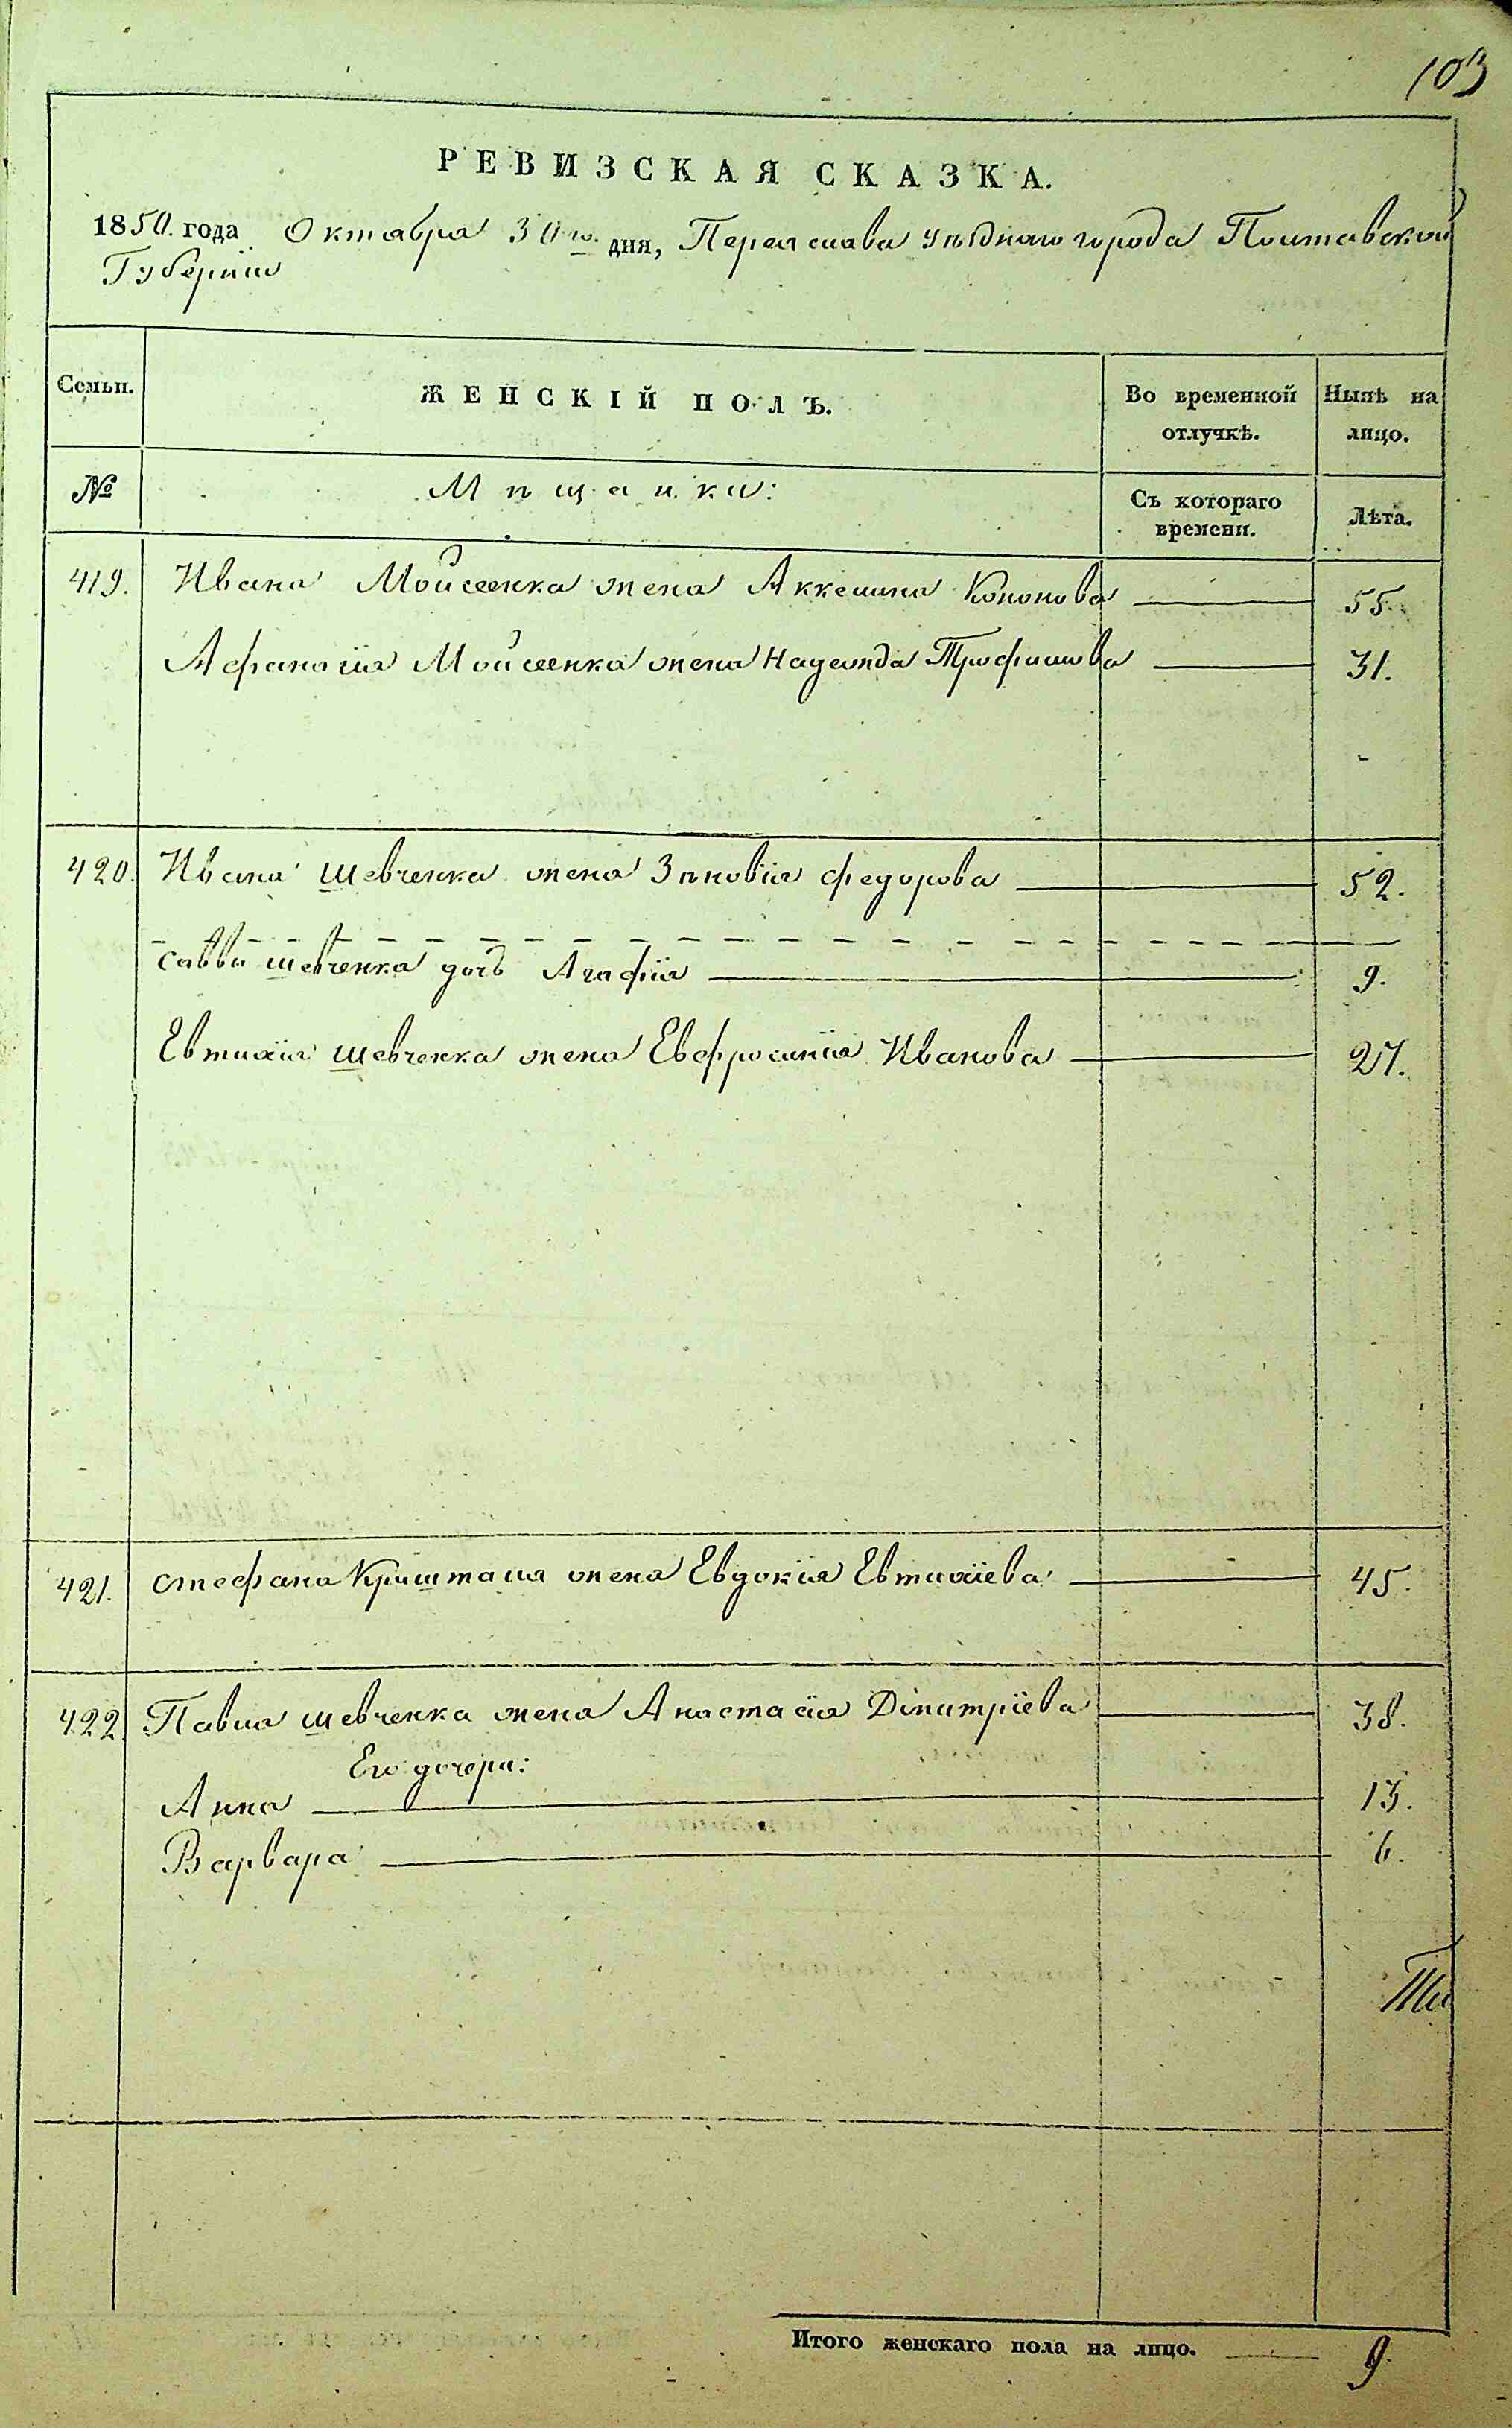 103
РЕВИЗСКАЯ СКАЗКА.
1850. года Октября 30го. дня, Переяслава уѣзднаго города Полтавской
Губерніи
Семьи. ЖЕНСКІЙ ПОЛЪ. Во временной отлучкѣ. Нынѣ на лицо.
№ Мѣщанки: Съ котораго времени. Лѣта.
419. Ивана Мойсеенка жена Аккелина Кононова 55.
Афанасія Мойсеенка жена Надежда Трофимова 31.
420. Ивана Шевченка жена Зѣновія Федорова 52.
Саввы Шевченка дочь Агафія 9.
Евтихія Шевченка жена Евфросинія Иванова 27.
421. Стефана Кришталя жена Евдокія Евтихіева 45.
422. Павла Шевченка жена Анастасія Дімитріева 38.
Его дочери:
Анна 13.
Варвара 6.
Итого женскаго пола на лицо. 9